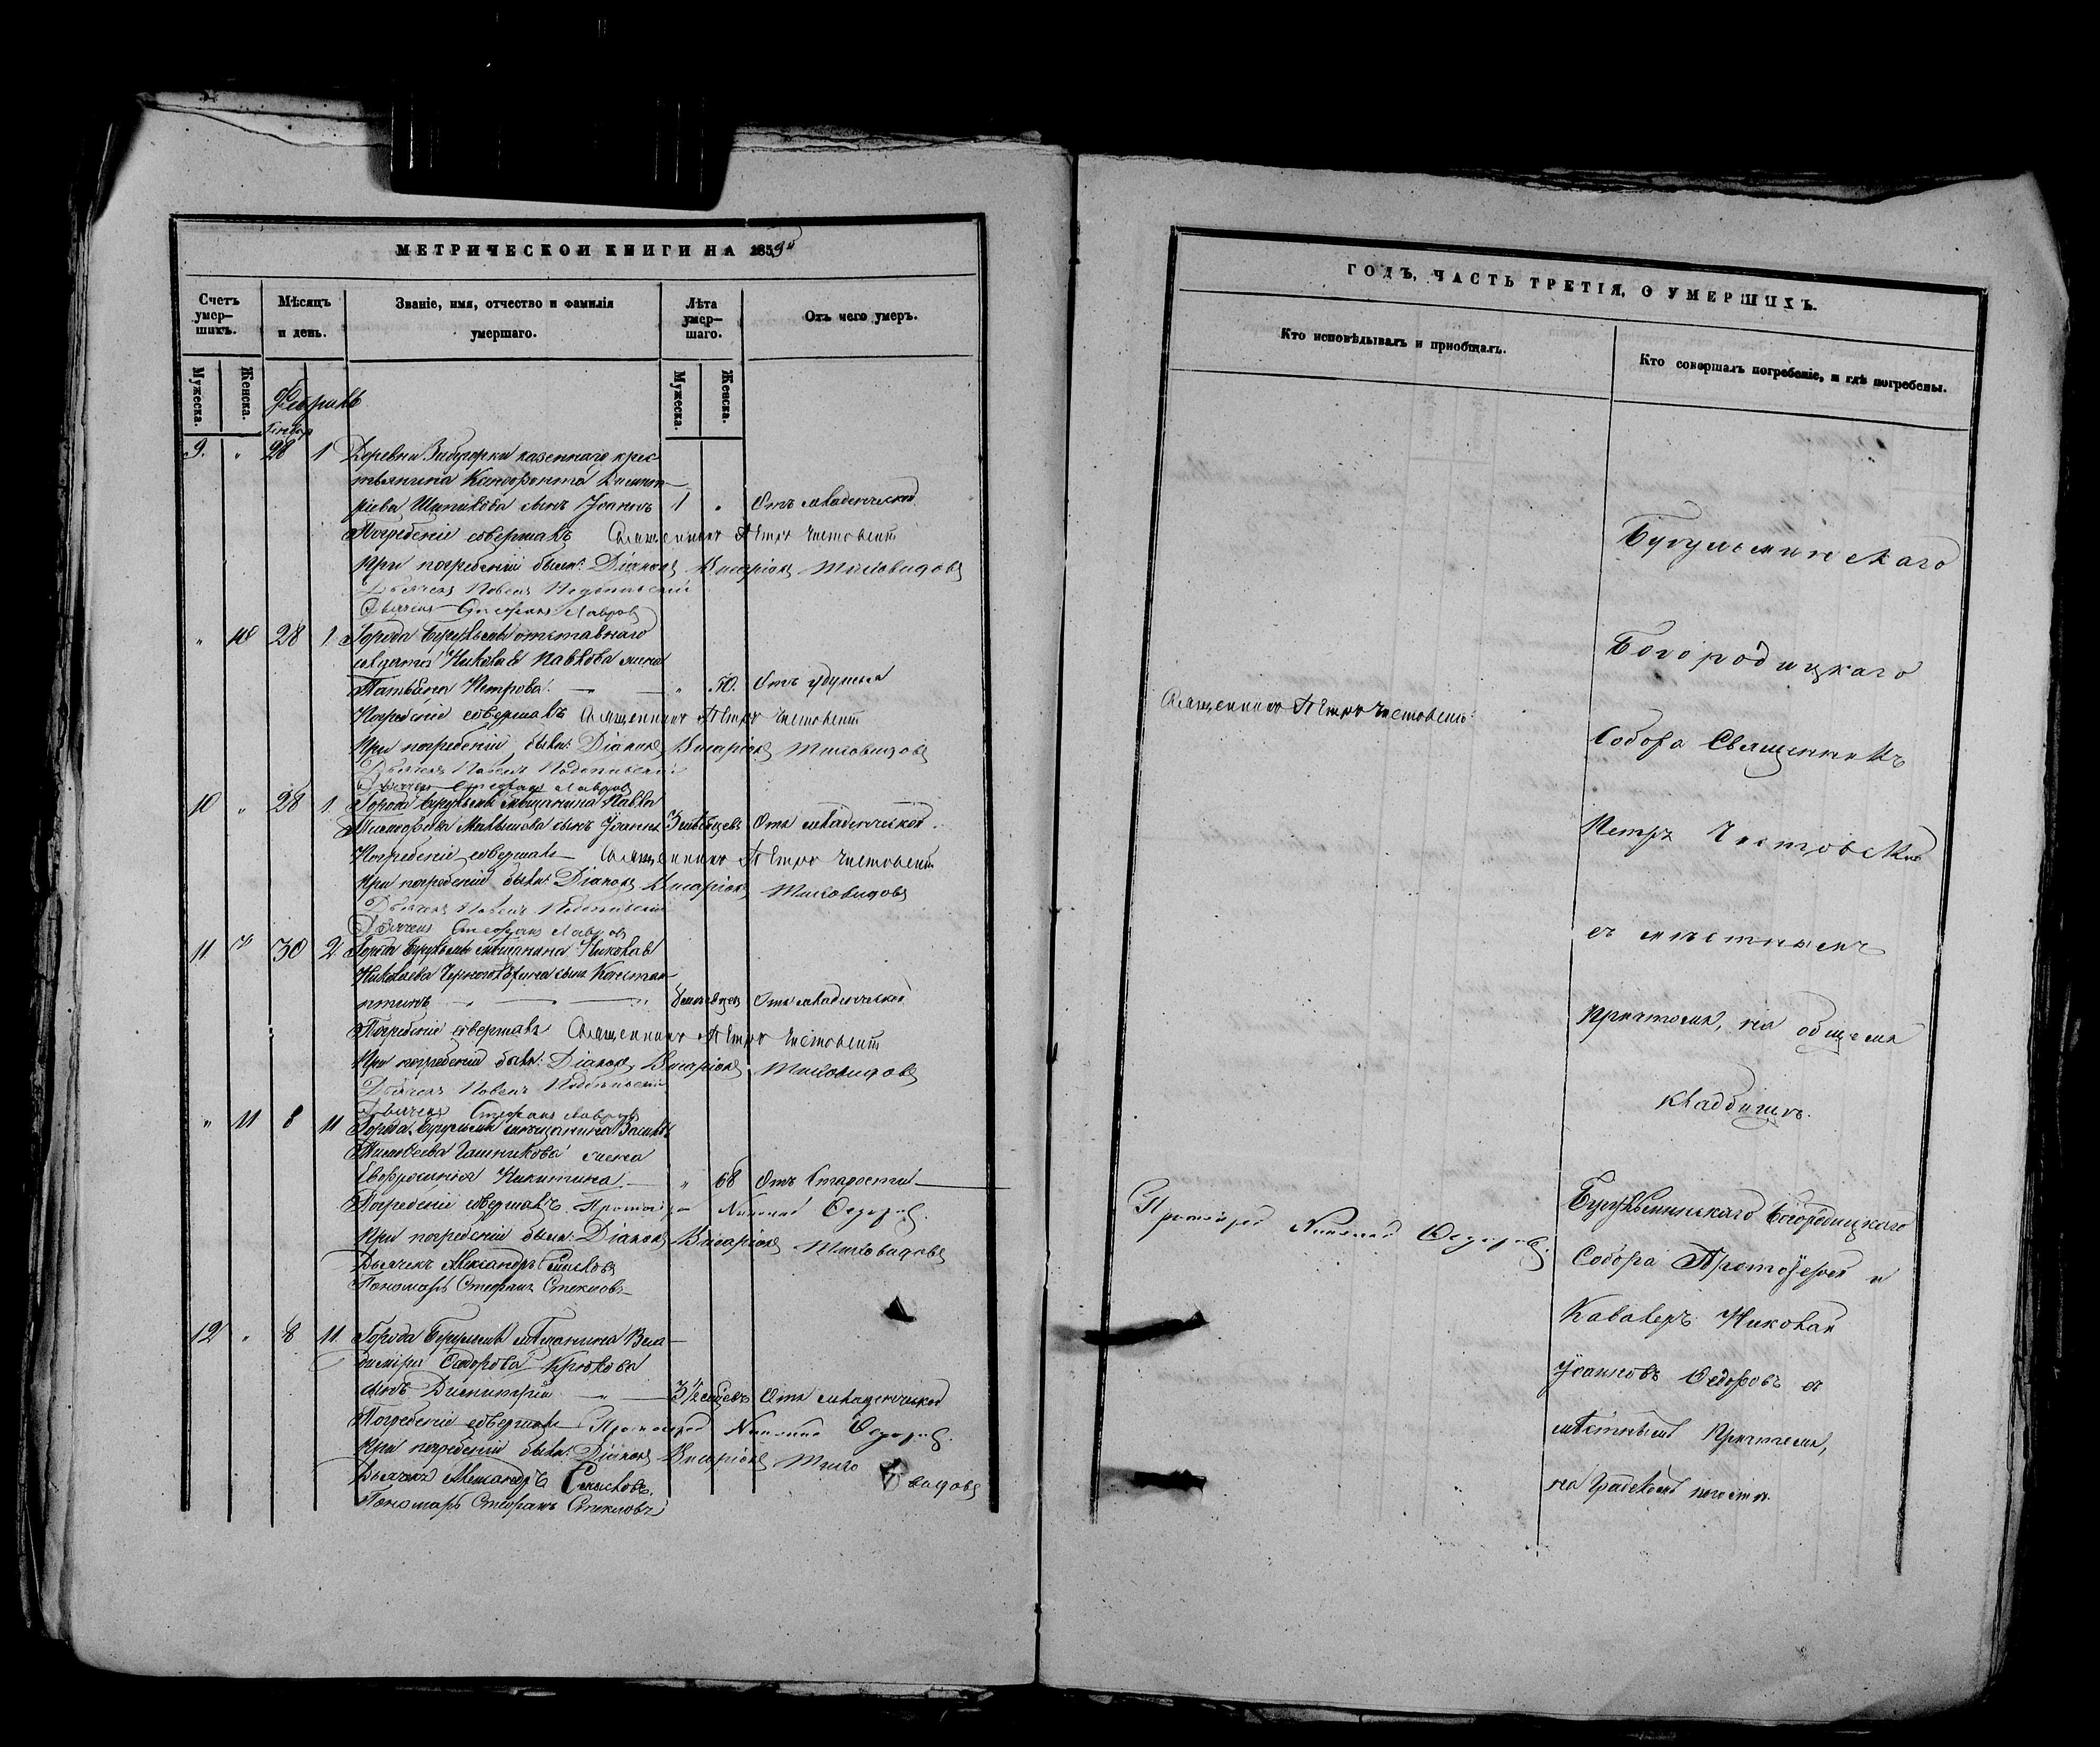 МЕТРИЧЕСКОЙ КНИГИ НА 1859й
Счетъ умер-шихъ.
Мѣсяцъ и день.
Званіе, имя, отчество и фамилія умершаго.
Лѣта умер-шаго.
Отъ чего умеръ.
Мужеска.
Женска.
Мужеска.
Женска.
Февраль
Генвар
9. " 28 1 Деревни казеннаго крес
тьянина Димит
ріева сынъ Іоаннъ 1 " Отъ младенческой
Погребеніе совершалъ Священникъ Петръ Чистовскій
При погребеніи были: Діаконъ Висаріонъ Миловидовъ
Дьячекъ Павелъ
Дьячекъ Стефанъ Лавровъ
" 10 28 1 Города Бугульмы отставнаго
солдата Николая Павлова жена
Татьяна Петрова. " 50. Отъ удушья
Погребеніе совершалъ Священникъ Петръ Чистовскій
При погребеніи были: Діаконъ Висаріонъ Миловидовъ
Дьячекъ Павелъ
Дьячекъ Стефанъ Лавровъ
10 " 28 1 Города Бугульмы мѣщанина Павла
Тимофеева сынъ Іоаннъ 3 мѣсяцевъ Отъ младенческой.
Погребеніе совершалъ Священникъ Петръ Чистовскій
При погребеніи были: Діаконъ Висаріонъ Миловидовъ
Дьячекъ Павелъ
Дьячекъ Стефанъ Лавровъ
11 " 30 2 Города Бугульмы мѣщанина Николая
Николаева сынъ Констан
тинъ мѣсяцев Отъ младенческой
Погребеніе совершалъ Священникъ Петръ Чистовскій
При погребеніи были: Діаконъ Висаріонъ Миловидовъ
Дьячекъ Павелъ
Дьячекъ Стефанъ Лавровъ
" 11 8 11 Города Бугульмы мѣщанина Василья
жена
Евфросинія Никитина " 68 Отъ Старости
Погребеніе совершалъ Протоіерей Николай Федоровъ.
При погребеніи были: Діаконъ Висаріонъ Миловидовъ
Дьячекъ Александръ Смысловъ
Пономарь Стефанъ Стекловъ
12 " 8 11 Города Бугульмы мѣщанина Вла
диміра Федорова Крюкова
сынъ Димитрій 3½ мѣсяцъ Отъ младенческой
Погребеніе совершалъ Протоіерей Николай Федоровъ.
При погребеніи были: Діаконъ Висаріонъ Мило видовъ
Дьячекъ Александръ Смысловъ.
Пономарь Стефанъ Стекловъ
ГОДЪ, ЧАСТЬ ТРЕТІЯ, О УМЕРШИХЪ.
Кто исповѣдывалъ и пріобщалъ.
Кто совершалъ погребеніе, и гдѣ погребены.
Священникъ Петръ Чистовскій
Протоіерей Николай Федоровъ.
Бугульминскаго
Богородицкаго
Собора Священникъ
Петръ Чистовскій
съ мѣстнымъ
причтомъ, на общемъ
кладбищѣ.
Бугульминскаго Богородицкаго
Собора Протоіерей и
Кавалеръ Николай
Іоанновъ Федоровъ съ
мѣстнымъ причтомъ,
на градскомъ погостѣ.